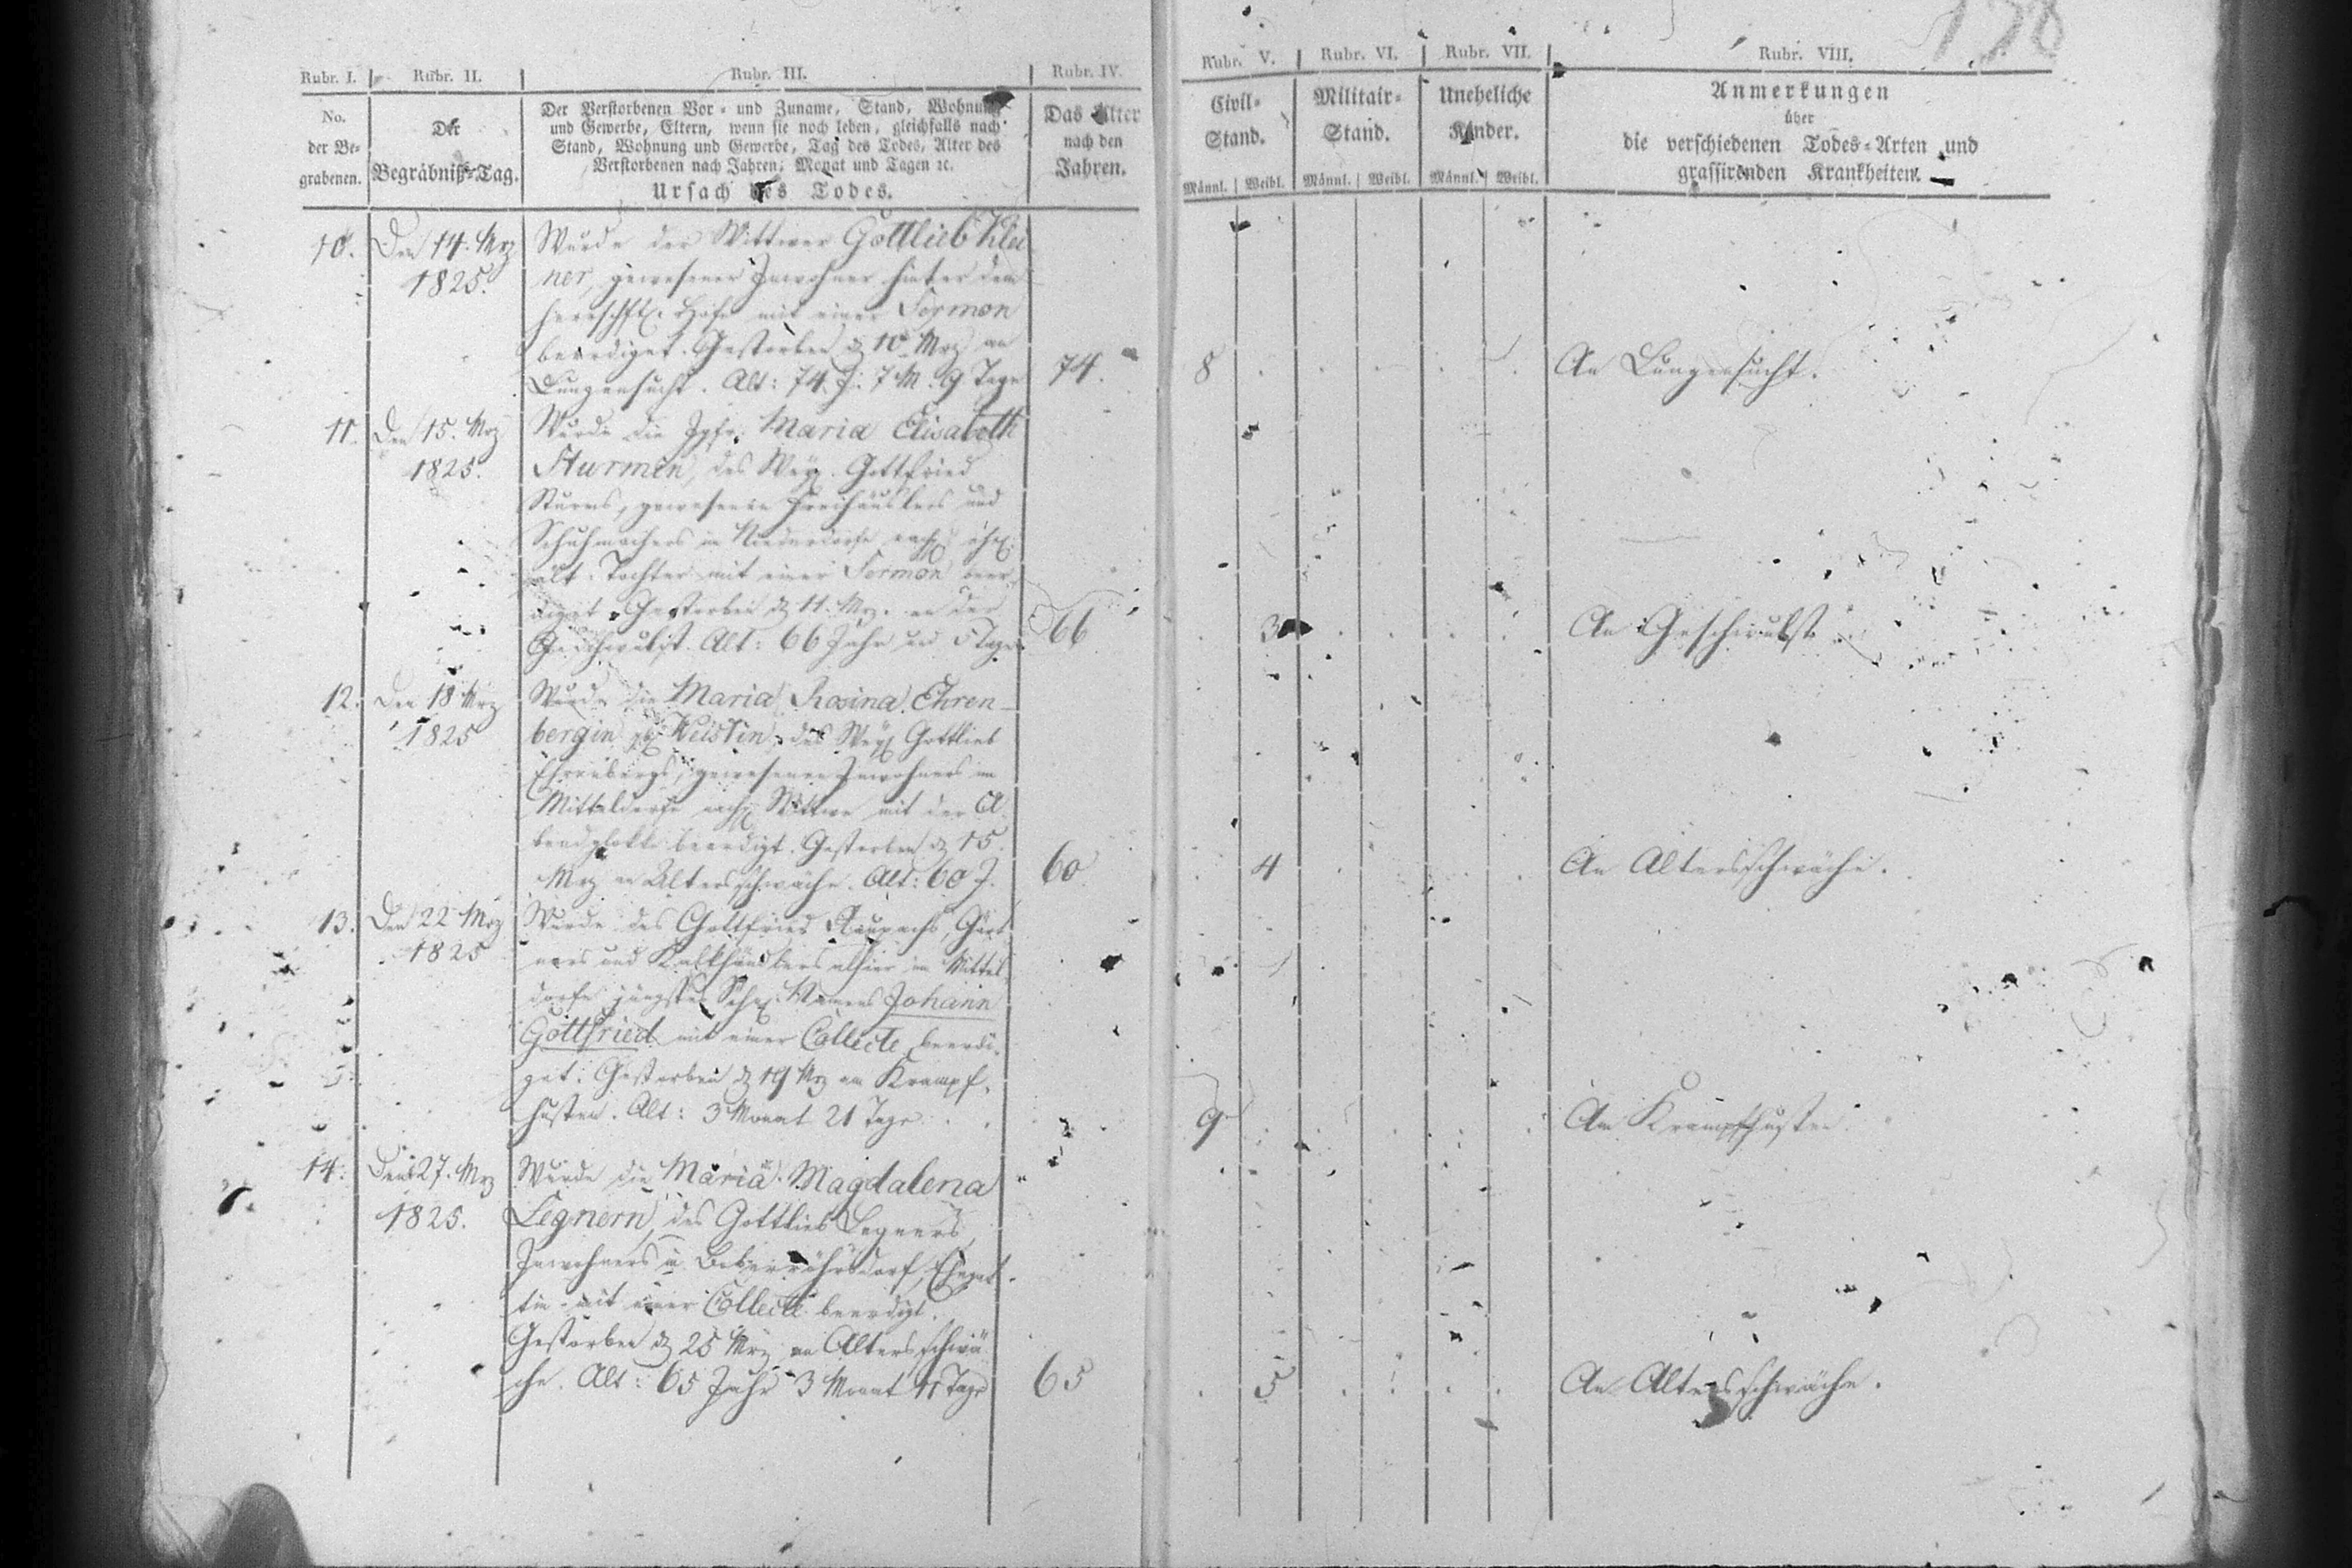 138
Rubr. I. Rubr. II. Rubr. III. Rubr. IV. Rubr. V. Rubr. VI. Rubr. VII. Rubr. VIII.
No.
der Be-
grabenen.
Der
Begräbniß-Tag.
Der Verstorbenen Vor- und Zuname, Stand, Wohnung
und Gewerbe, Eltern, wenn sie noch leben, gleichfalls nach
Stand, Wohnung und Gewerbe, Tag des Todes, Alter des
Verstorbenen nach Jahren, Monat und Tagen ꝛc.
Ursach des Todes.
Das Alter
nach den
Jahren.
Civil-
Stand.
Männl. Weibl.
Militair-
Stand.
Männl. Weibl.
Uneheliche
Kinder.
Männl. Weibl.
Anmerkungen
über
die verschiedenen Todes-Arten und
grassirenden Krankheiten.
10. Den 14. Mrz
1825.
Wurde der Wittwer Gottlieb Klei
ner, gewesener Inwohner hinter dem
herrschftl. Hofe mit einer Sermon
beerdiget. Gestorben d 10 Mrz an
Lungensucht. Alt: 74. J. 7 M. 9 Tage 74. 8 An Lungensucht.
11. Den 15. Mrz
1825.
Wurde die Jgfr. Maria Elisabeth
Sturmin, des Weyl. Gottfried
Sturms, gewesenen Freihäuslers und
Schuhmachers in Niederdorfe
ält. Tochter mit einer Sermon beer-
diget. Gestorben d 11. Mrz. an der
Geschwulst. Alt: 66 Jahr und 5 Tage 66 3 An Geschwulst
12. Den 18 Mrz
1825
Wurde die Maria Rosina Ehren-
bergin, des Weyl Gottlieb
Ehrenbergs, gewesenen Inwohners im
Mitteldorfe Wittwe mit der A
bendglokke beerdigt. Gestorben d 15.
Mrz an Altersschwäche. Alt: 60 J. 60 4 An Altersschwäche.
13. Den 22 Mrz
1825
Wurde des Gottfried Raupachs, Gärt
ners und Kalkhändlers alhier im Mittel
dorfe jüngstes Namens Johann
Gottfried mit einer Collecte beerdi-
get. Gestorben d 19 Mrz am Krampf-
husten. Alt: 3 Monat 21 Tage 9 Am Krampfhusten
14. Den 27. Mrz
1825.
Wurde die Maria Magdalena
Legnern, des Gottlieb Legners,
Inwohners in Ehegat-
tin mit einer Collecte beerdigt.
Gestorben d 25 Mrz an Altersschwä
che. Alt: 65 Jahr 3 Monat 11 Tage 65 5 An Altersschwäche.